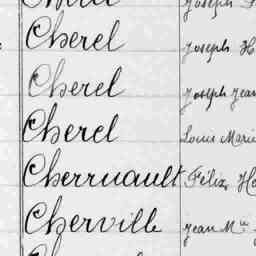 Cherel Joseph
Cherel Joseph H
Cherel Joseph Jean
Cherel Louis Marie
Cherruault Félix, H
Cherville Jean M